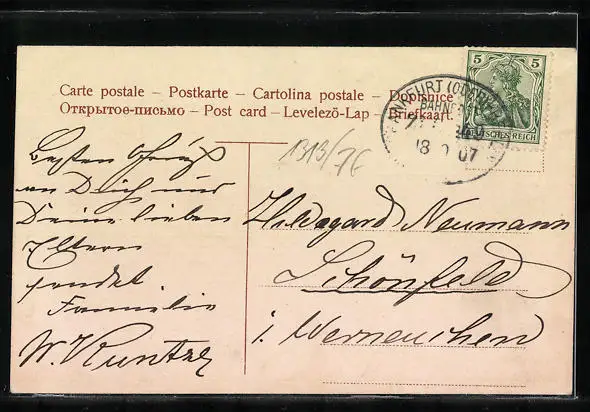 Carte postale – Postkarte – Cartolina postale – Dopisnice
Открытое-письмо – Post card – Levelező-Lap – Briefkaart.
5 5
DEUTSCHES REICH
FRANKFURT (ODER)
BAHNHOF
07
1313/76
Besten Gruß
an Dich und
Deine lieben
Eltern
sendet
Familie
W. Kuntze
Hildegard Neumann
Schönfeld
i. Werneuchen